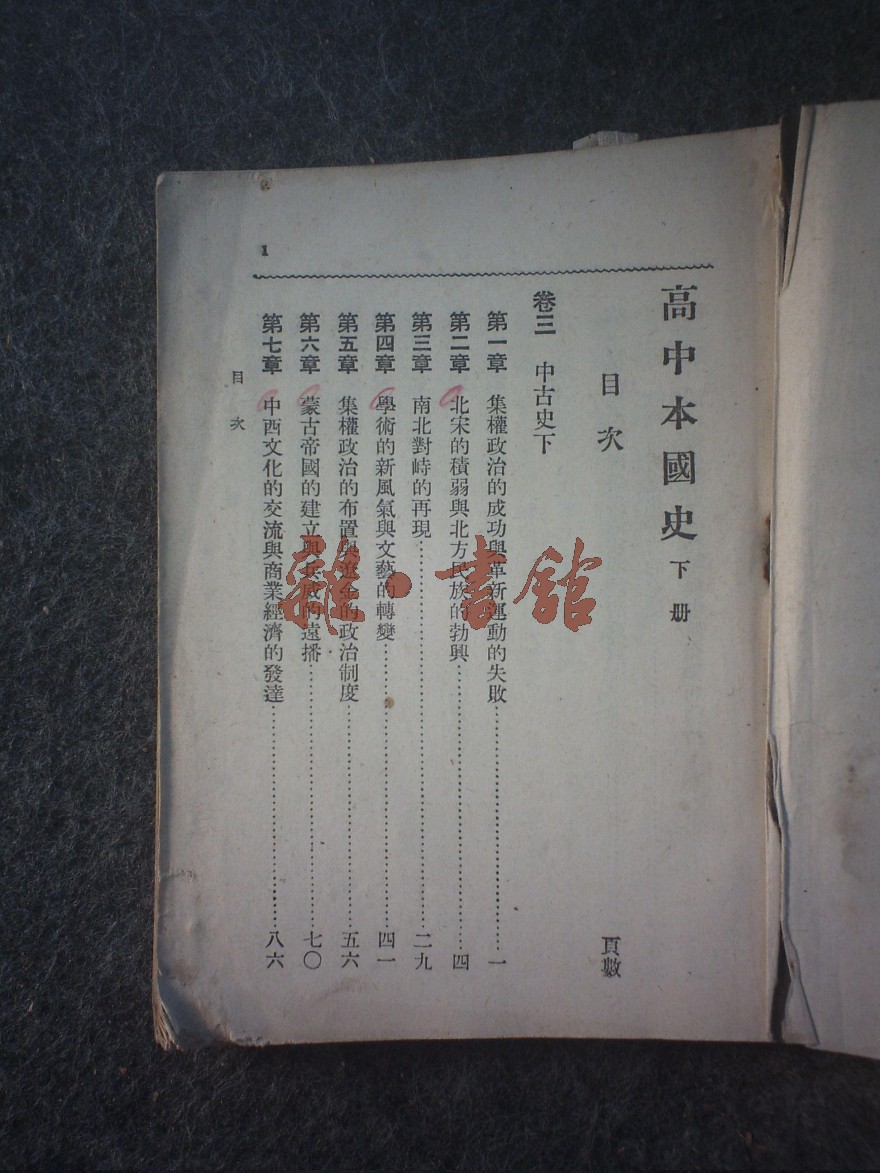 高中本國史 下册
目次 頁數
卷三 中古史下
第一章 集權政治的成功與革新運動的失敗……一
第二章 北宋的積弱與北方民族的勃興……四
第三章 南北對峙的再現……二九
第四章 學術的新風氣與文藝的轉變……四一
第五章 集權政治的布置與遼金的政治制度……五六
第六章 蒙古帝國的建立與兵威的遠播……七〇
第七章 中西文化的交流與商業經濟的發達……八六
目次
1
書館